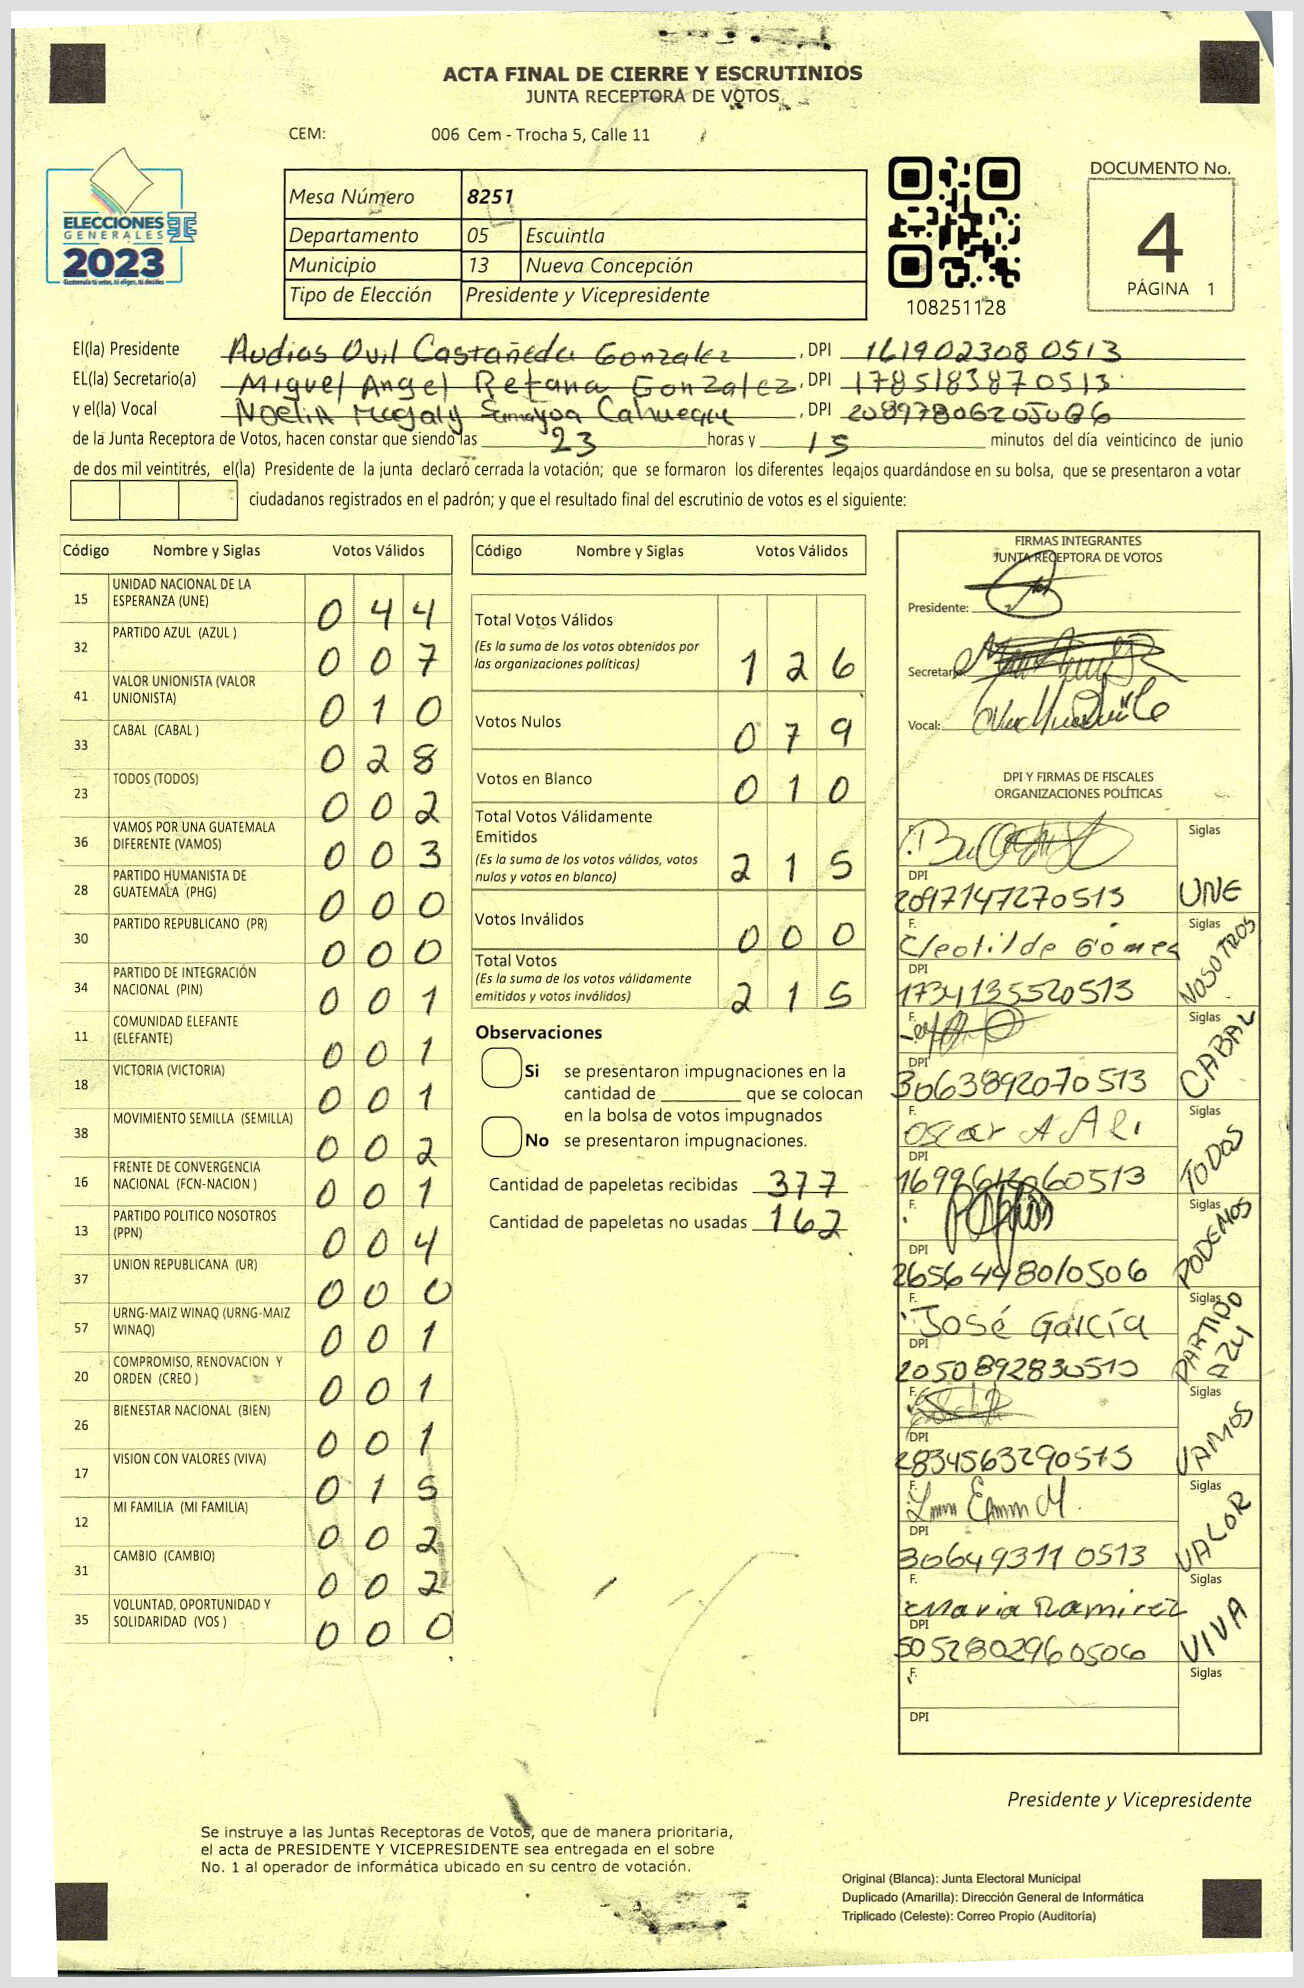 ACTA FINAL DE CIERRE Y ESCRUTINIOS
JUNTA RECEPTORA DE VOTOS
CEM: 006 Cem - Trocha 5, Calle 11
ELECCIONES
GENERALES
2023
Guatemala tú votas, tú eliges, tú decides
Mesa Número 8251
Departamento 05 Escuintla
Municipio 13 Nueva Concepción
Tipo de Elección Presidente y Vicepresidente
108251128
DOCUMENTO No.
4
PÁGINA 1
El(la) Presidente Audias Ovil Castañeda Gonzalez, DPI 1619023080513
EL(la) Secretario(a) Miguel Angel Retana Gonzalez, DPI 1785183870513
y el(la) Vocal Noelia Magaly Samayoa Cahueque, DPI
de la Junta Receptora de Votos, hacen constar que siendo las 23 horas y 15 minutos del día veinticinco de junio
de dos mil veintitrés, el(la) Presidente de la junta declaró cerrada la votación; que se formaron los diferentes legajos guardándose en su bolsa, que se presentaron a votar
ciudadanos registrados en el padrón; y que el resultado final del escrutinio de votos es el siguiente:
Código Nombre y Siglas Votos Válidos
15 UNIDAD NACIONAL DE LA ESPERANZA (UNE) 044
32 PARTIDO AZUL (AZUL ) 007
41 VALOR UNIONISTA (VALOR UNIONISTA) 010
33 CABAL (CABAL ) 028
23 TODOS (TODOS) 002
36 VAMOS POR UNA GUATEMALA DIFERENTE (VAMOS) 003
28 PARTIDO HUMANISTA DE GUATEMALA (PHG) 000
30 PARTIDO REPUBLICANO (PR) 000
34 PARTIDO DE INTEGRACIÓN NACIONAL (PIN) 001
11 COMUNIDAD ELEFANTE (ELEFANTE) 001
18 VICTORIA (VICTORIA) 001
38 MOVIMIENTO SEMILLA (SEMILLA) 002
16 FRENTE DE CONVERGENCIA NACIONAL (FCN-NACION ) 001
13 PARTIDO POLITICO NOSOTROS (PPN) 004
37 UNION REPUBLICANA (UR) 000
57 URNG-MAIZ WINAQ (URNG-MAIZ WINAQ) 001
20 COMPROMISO, RENOVACION Y ORDEN (CREO ) 001
26 BIENESTAR NACIONAL (BIEN) 001
17 VISION CON VALORES (VIVA) 015
12 MI FAMILIA (MI FAMILIA) 002
31 CAMBIO (CAMBIO) 002
35 VOLUNTAD, OPORTUNIDAD Y SOLIDARIDAD (VOS ) 000
Código Nombre y Siglas Votos Válidos
Total Votos Válidos 126
(Es la suma de los votos obtenidos por
las organizaciones políticas)
Votos Nulos 079
Votos en Blanco 010
Total Votos Válidamente
Emitidos 215
(Es la suma de los votos válidos, votos
nulos y votos en blanco)
Votos Inválidos 000
Total Votos 215
(Es la suma de los votos válidamente
emitidos y votos inválidos)
Observaciones
Si se presentaron impugnaciones en la
cantidad de ________ que se colocan
en la bolsa de votos impugnados
No se presentaron impugnaciones.
Cantidad de papeletas recibidas 377
Cantidad de papeletas no usadas 162
FIRMAS INTEGRANTES
JUNTA RECEPTORA DE VOTOS
Presidente:
Secretario:
Vocal:
DPI Y FIRMAS DE FISCALES
ORGANIZACIONES POLÍTICAS
F. Siglas
DPI 2097147270513 UNE
F. Cleotilde Gómez Siglas
DPI 1734135520513 NOSOTROS
F. Siglas
DPI 3063892070513 CABAL
F. Oscar A Siglas
DPI TODOS
F. Siglas
DPI 2656449800506 PODEMOS
F. José García Siglas
DPI 2050892830513 PARTIDO AZUL
F. Siglas
DPI 2834563290513 VAMOS
F. Siglas
DPI 3064993110513 VALOR
F. Maria Ramirez Siglas
DPI 5052802960506 VIVA
F. Siglas
DPI
Presidente y Vicepresidente
Se instruye a las Juntas Receptoras de Votos, que de manera prioritaria,
el acta de PRESIDENTE Y VICEPRESIDENTE sea entregada en el sobre
No. 1 al operador de informática ubicado en su centro de votación.
Original (Blanca): Junta Electoral Municipal
Duplicado (Amarilla): Dirección General de Informática
Triplicado (Celeste): Correo Propio (Auditoría)